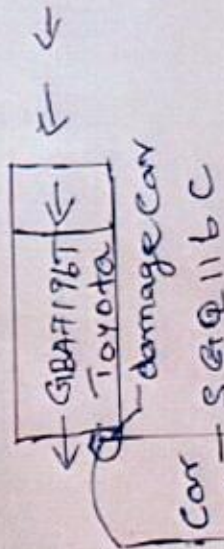 GBA7196T
Toyota
damage Car
Car SGQ116C